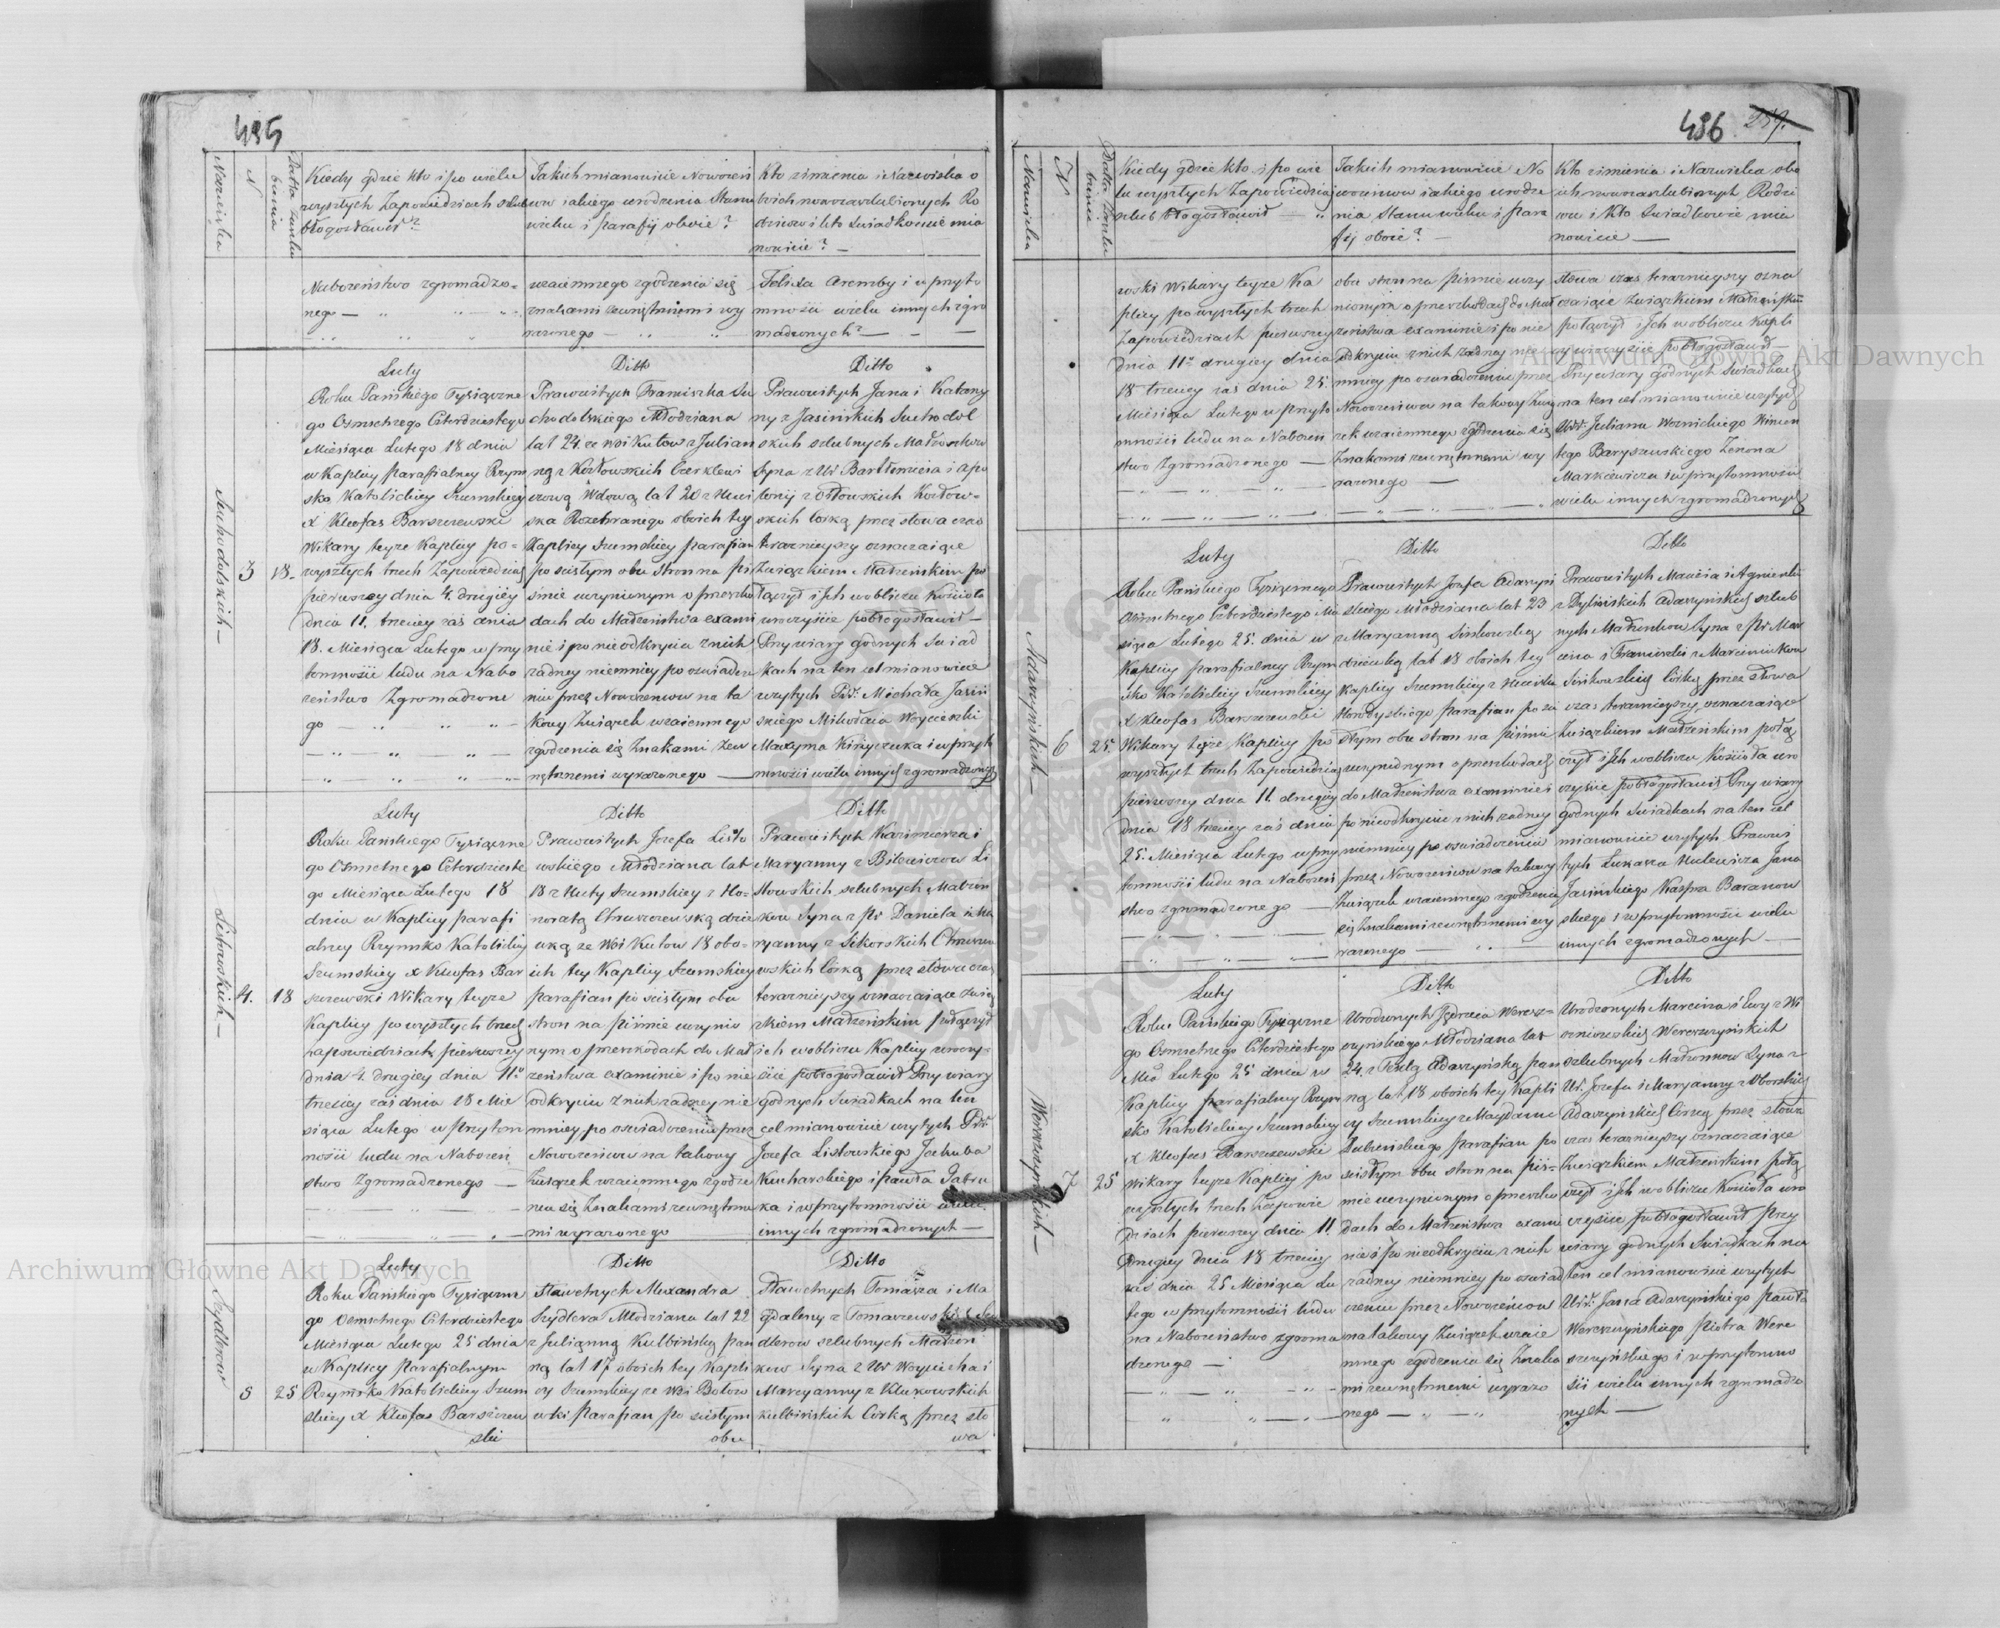 495
Nazwiska
N
Datta Szlubu
bunia
Kiedy gdzie kto i po wielu
wyszłych Zapowiedziach szlub
błogosławił?
Jakich mianowicie Nowożeń
ców iakiego urodzenia Stanu
wieku i parafij oboie?
Kto z imienia i Nazwiska o
boich nowozaslubionych Ro
dziców i kto Swiadkowie mia
nowicie? —
Nabożeństwo zgromadzo-
nego —
wzaiemnego zgodzenia się
znakami zewnętrznemi wy
rażonego —
Felixa Aremby i w przyto
mności wielu innych zgro
madzonych —
Suchodolskich —
3
18.
Luty
Roku Pańskiego Tysiączne
go Osmsetnego Czterdziestego
Miesiąca Lutego 18 dnia
w Kaplicy Parafialney Rzym
sko Katolickiey Szumskiey
X Kleofas Barszczewski
Wikary teyże Kaplicy po-
wyszłych trzech Zapowiedziach
pierwszey dnia 4. drugiey
dnia 11. trzeciey zaś dnia
18. Miesiąca Lutego w przy
tomności ludu na Nabo
żeństwo Zgromadzone
go —
Ditto
Prawowitych Franciszka Su
chodolskiego Młodziana
lat 24. ze Wsi Kutow z Julian
ną z Kozłowskich Czerklewi
czową Wdową lat 20 z Huci
ska Rozebranego oboich tey
Kaplicy Szumskiey parafian
po scisłym obu Stron na pi
smie uczynionym o przeszko
dach do Małżeństwa exami
nie i po nieodkryciu z nich
żadney niemniey po oswiadcze
niu przez Nowożeńców na ta
kowy Związek wzaiemnego
zgodzenia się Znakami Zew
nętrznemi wyrażonego —
Ditto
Prawowitych Jana i Katarzy
ny z Jasińskich Suchodol
skich szlubnych Małżonków
Syna z Ur Bartłomieia i Apo
lonij z Orłowskich Kozłow-
skich Córką przez słowa czas
teraznieyszy oznaczaiące
Związkiem Małżeńskim po
łączył i Ich w obliczu Kościoła
uroczyście pobłogosławił —
Przy wiary godnych Swiad
kach na ten cel mianowicie
wzytych Praw. Michała Jasiń
skiego Mikołaia Woycieszki
Maxyma Kińyczuka i w przyto
mności wielu innych zgromadzonych
Listowskich —
4.
18
Luty
Roku Pańskiego Tysiączne
go Osmsetnego Czterdzieste
go Miesiąca Lutego 18
dnia w Kaplicy parafi
alney Rzymsko Katolickiey
Szumskiey X Kleofas Bar
szczewski Wikary teyże
Kaplicy po wyszłych trzech
zapowiedziach pierwszey
dnia 4. drugiey dnia 11º
trzeciey zaś dnia 18 Mie
siąca Lutego w Przytom
ności ludu na Nabożeń
stwo Zgromadzonego —
Ditto
Prawowitych Jozefa Listo
wskiego Młodziana lat
18 z Huty Szumskiey z Ho-
noratą Chruszczewską dzie
wką ze Wsi Kutow 18 obo-
ich tey Kaplicy Szumskiey
parafian po scisłym obu
stron na piśmie uczynio
nym o przeszkodach do Mał
żeństwa examinie i po nie
odkryciu z nich żadney nie
mniey po oswiadczeniu przez
Nowożeńców na takowy
Związek wzaiemnego zgodze
niu się Znakami zewnętrzne
mi wyrażonego
Ditto
Prawowitych Kazimierza i
Maryanny z Bilewiczow Li
stowskich szlubnych Małżon
ków Syna z Pr Daniela i Ma
ryanny z Sikorskich Chruszcz
ewskich Córką przez słowa czas
teraznieyszy oznaczaiące Zwią
zkiem Małżeńskim połączył
ich w obliczu Kaplicy uroczy-
ście pobłogosławił Przy wiary
godnych Swiadkach na ten
cel mianowicie wzytych Praw
Jozefa Listowskiego Jakuba
Kucharskiego i Pawła Patru
ka i w przytomności wielu
innych zgromadzonych —
Szydlerow
5
25
Luty
Roku Pańskiego Tysiączne
go Osmsetnego Czterdziestego
Miesiąca Lutego 25 dnia
w Kaplicy Parafialnym
Rzymsko Katolickiey Szum
skiey X Kleofas Barszczew
ski
Ditto
Sławetnych Alexandra
Szydlera Młodziana lat 22
z Julianną Kulbińską pan
ną lat 17 oboich tey Kapli
cy Szumskiey ze Wsi Botow
wki Parafian po scisłym
obu
Ditto
Sławetnych Tomasza i Ma
gdaleny z Tomaszewskich Szy
dlerow szlubnych Małżon
kow Syna z Ur Woyciecha i
Maryanny z Klukowskich
Kulbińskich Córką przez sło
wa
496 289.
Nazwiska
N
Datta Szlubu
bunia
Kiedy gdzie kto i po wie
lu wyszłych Zapowiedziach
szlub błogosławił —
Jakich mianowicie No
wożeńców iakiego urodze
nia Stanu wieku i para
fij oboie? —
Kto z imienia i Nazwiska obo
ich nowozaslubionych Rodzi
ców i kto Swiadkowie mia
nowicie —
wski Wikary teyże Ka
plicy po wyszłych trzech
Zapowiedziach pierwszey
dnia 11º drugiey dnia
18 trzeciey zaś dnia 25.
Miesiąca Lutego w przyto
mności ludu na Nabożeń
stwo Zgromadzonego —
obu stron na piśmie uczy
nionym o przeszkodach do Mał
żeństwa examinie i po nie
odkryciu z nich żadney nie
mniey po oswiadczeniu przez
Nowożeńców na takowy Zwią
zek wzaiemnego zgodzenia się
Znakami zewnętrznemi wy
rażonego —
słowa czas teraznieyszy ozna
czaiące Związkiem Małżeńskim
połączył i Ich w obliczu Kapli
cy uroczyście pobłogosławił —
Przy wiary godnych Swiadkach
na ten cel mianowicie wzytych
Ur. Juliana Woznickiego Wincen
tego Baryszewskiego Zenona
Markiewicza i w przytomności
wielu innych zgromadzonych
Adaszyńskich —
6
25.
Luty
Roku Pańskiego Tysiącznego
Osmsetnego Czterdziestego Mie
siąca Lutego 25. dnia w
Kaplicy parafialney Rzym
sko Katolickiey Szumskiey
X Kleofas Barszczewski
Wikary teyże Kaplicy po
wyszłych trzech Zapowiedziach
pierwszey dnia 11. drugiey
dnia 18 trzeciey zaś dnia
25. Miesiąca Lutego w przy
tomności ludu na Nabożeń
stwo zgromadzonego —
Ditto
Prawowitych Jozefa Adaszyń
skiego Młodziana lat 23
z Maryanną Sinkowską
dziewką lat 18 oboich tey
Kaplicy Szumskiey z Huciska
Horodyskiego parafian po sci
słym obu stron na piśmie
uczynionym o przeszkodach
do Małżeństwa examinie i
po nieodkryciu z nich żadney
niemniey po oswiadczeniu
przez Nowożeńców na takowy
Związek wzaiemnego zgodzenia
się Znakami zewnętrznemi wy
rażonego —
Ditto
Prawowitych Macieia i Agnieszki
z Bylińskich Adaszyńskich szlub
nych Małżonkow Syna z Pr Mar
cina i Franciszki z Marciniukow
Sińkowskich Córką przez słowa
czas teraznieyszy oznaczaiące
Związkiem Małżeńskim połą
czył i Ich w obliczu Kościoła uro
czyście pobłogosławił Przy wiary
godnych Swiadkach na ten cel
mianowicie wzytych Prawowi
tych Łukasza Hulewicza Jana
Jasińskiego Kaspra Baranow
skiego i w przytomności wielu
innych zgromadzonych —
Wereszczyńskich —
7
25
Luty
Roku Pańskiego Tysiączne
go Osmsetnego Czterdziestego
Mca Lutego 25 dnia w
Kaplicy parafialney Rzym
sko Katolickiey Szumskiey
X Kleofas Barszczewski
Wikary teyże Kaplicy po
wyszłych trzech Zapowie
dziach pierwszey dnia 11.
Drugiey Dnia 18 trzeciey
zaś dnia 25 Miesiąca Lu
tego w przytomności ludu
na Nabożeństwo zgroma
dzonego —
Ditto
Urodzonych Jędrzeia Weresz-
czyńskiego Młodziana lat
24. z Teklą Adaszyńską pan
ną lat 18 oboich tey Kapli
cy Szumskiey z Maydanu
Lubeńskiego parafian po
scisłym obu stron na piś-
mie uczynionym o przeszko
dach do Małżeństwa exami
nie i po nieodkryciu z nich
żadney niemniey po oswiad
czeniu przez Nowożeńcow
na takowy Związek wzaie
mnego zgodzenia się Znaka
mi zewnętrznemi wyrażo
nego —
Ditto
Urodzonych Marcina i Ewy z Wi
szniowskich Wereszczyńskich
szlubnych Małżonkow Syna z
Ur. Jozefa i Maryanny z Oborskich
Adaszyńskich Córką przez słowa
czas teraznieyszy oznaczaiące
Związkiem Małżeńskim połą
czył i Ich w obliczu Kościoła uro
czyście pobłogosławił Przy
wiary godnych Swiadkach na
ten cel mianowicie wzytych
Ur. Jana Adaszyńskiego Pawła
Wereszczyńskiego Piotra Were
szczyńskiego i w przytomno
ści wielu innych zgromadzo
nych —
Archiwum Główne Akt Dawnych
Archiwum Główne Akt Dawnych